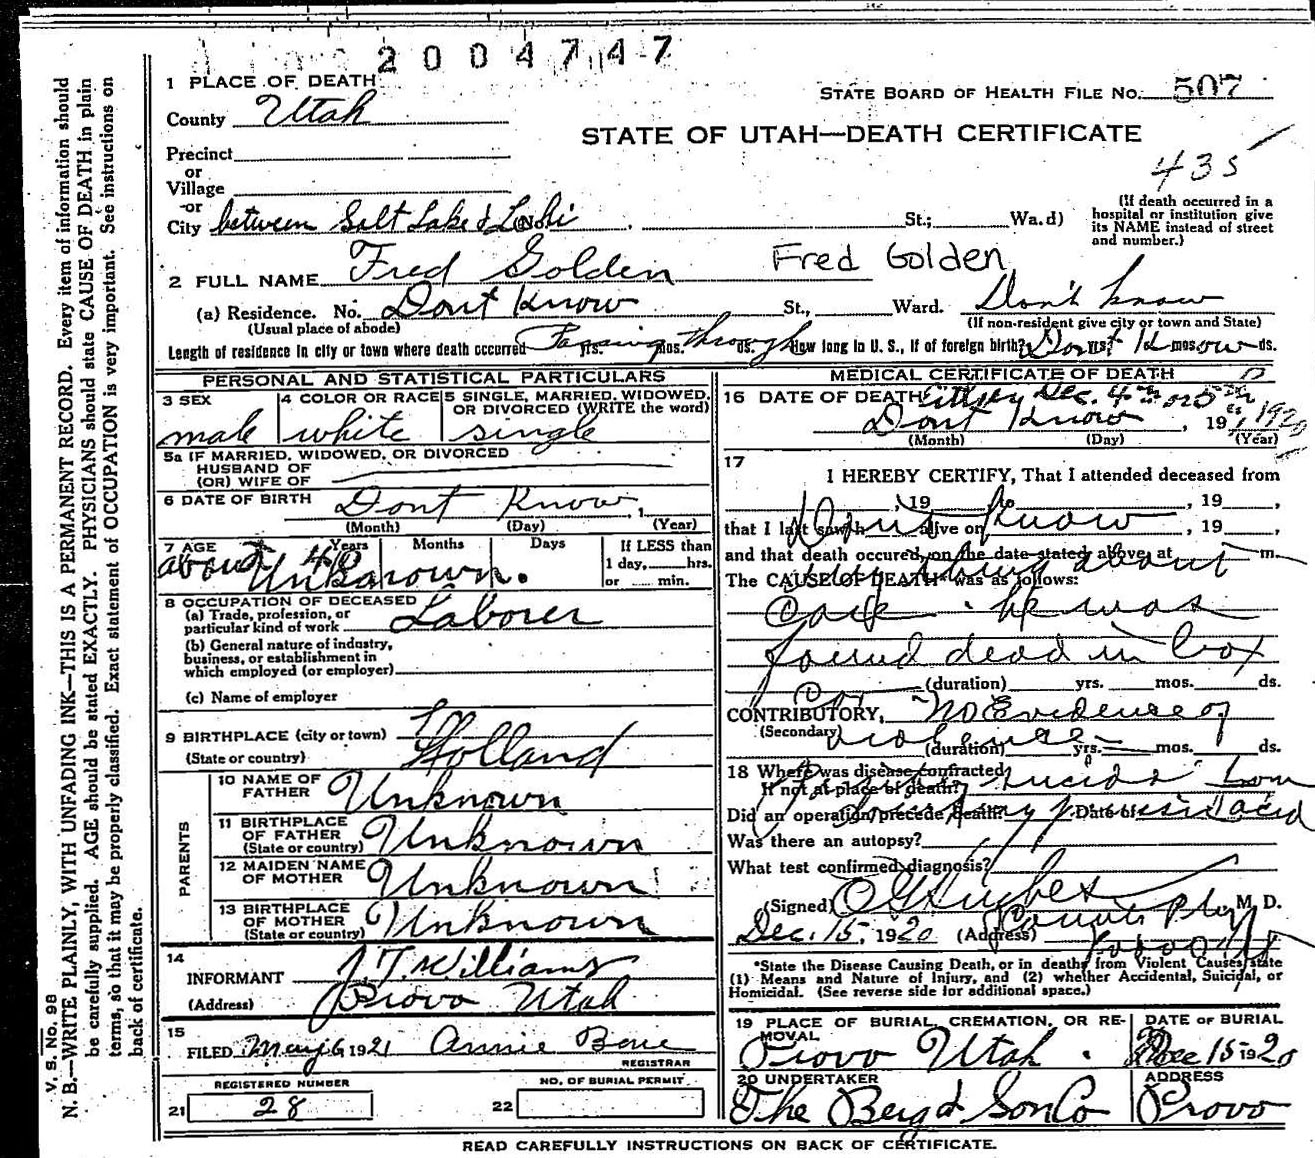 2004747
1 PLACE OF DEATH
STATE BOARD OF HEALTH FILE No. 507
County Utah
STATE OF UTAH—DEATH CERTIFICATE
Precinct
or
Village
435
or
City between Salt Lake & Lehi No. St.; Ward)
(If death occurred in a hospital or institution give its NAME instead of street and number.)
2 FULL NAME Fred Golden Fred Golden
(a) Residence. No. Dont Know St., Ward. Don't know
(Usual place of abode) (If non-resident give city or town and State)
Length of residence in city or town where death occurred Passing through yrs. mos. ds. How long in U. S., if of foreign birth? Dont Know yrs. mos. ds.
PERSONAL AND STATISTICAL PARTICULARS
3 SEX male
4 COLOR OR RACE white
5 SINGLE, MARRIED, WIDOWED, OR DIVORCED (WRITE the word) single
5a IF MARRIED, WIDOWED, OR DIVORCED
HUSBAND OF
(OR) WIFE OF
6 DATE OF BIRTH Dont Know, 1
(Month) (Day) (Year)
7 AGE Years Months Days If LESS than
1 day, hrs.
or min.
about 48
Unknown.
8 OCCUPATION OF DECEASED
(a) Trade, profession, or
particular kind of work Laborer
(b) General nature of industry,
business, or establishment in
which employed (or employer)
(c) Name of employer
9 BIRTHPLACE (city or town)
(State or country) Holland
PARENTS
10 NAME OF FATHER Unknown
11 BIRTHPLACE OF FATHER (State or country) Unknown
12 MAIDEN NAME OF MOTHER Unknown
13 BIRTHPLACE OF MOTHER (State or country) Unknown
14
INFORMANT J. T. Williams
(Address) Provo Utah
15
FILED May 6 1921 Annie Bone
REGISTRAR
REGISTERED NUMBER
21 28
NO. OF BURIAL PERMIT
22
MEDICAL CERTIFICATE OF DEATH
16 DATE OF DEATH Either Dec. 4th or 5th
Dont Know, 19 1920
(Month) (Day) (Year)
17
I HEREBY CERTIFY, That I attended deceased from
, 19 to , 19 ,
that I last saw h alive on , 19 ,
Dont Know
and that death occured, on the date stated above, at m.
anything about
The CAUSE OF DEATH* was as follows:
case. he was
found dead in box
car
(duration) yrs. mos. ds.
CONTRIBUTORY, No Evidence of
(Secondary) violence
(duration) yrs. mos. ds.
18 Where was disease contracted
If not at place of death?
Did an operation precede death? Date of
Was there an autopsy?
What test confirmed diagnosis?
(Signed) Hughes, M. D.
Dec. 15, 1920 (Address) County Phy
Provo
*State the Disease Causing Death, or in deaths from Violent Causes, state
(1) Means and Nature of Injury, and (2) whether Accidental, Suicidal, or
Homicidal. (See reverse side for additional space.)
19 PLACE OF BURIAL, CREMATION, OR REMOVAL
Provo Utah.
DATE OF BURIAL
Dec 15 1920
20 UNDERTAKER
The Berg & Son Co
ADDRESS
Provo
READ CAREFULLY INSTRUCTIONS ON BACK OF CERTIFICATE.
V. S. No. 98
N. B.—WRITE PLAINLY, WITH UNFADING INK—THIS IS A PERMANENT RECORD. Every item of information should
be carefully supplied. AGE should be stated EXACTLY. PHYSICIANS should state CAUSE OF DEATH in plain
terms, so that it may be properly classified. Exact statement of OCCUPATION is very important. See instructions on
back of certificate.